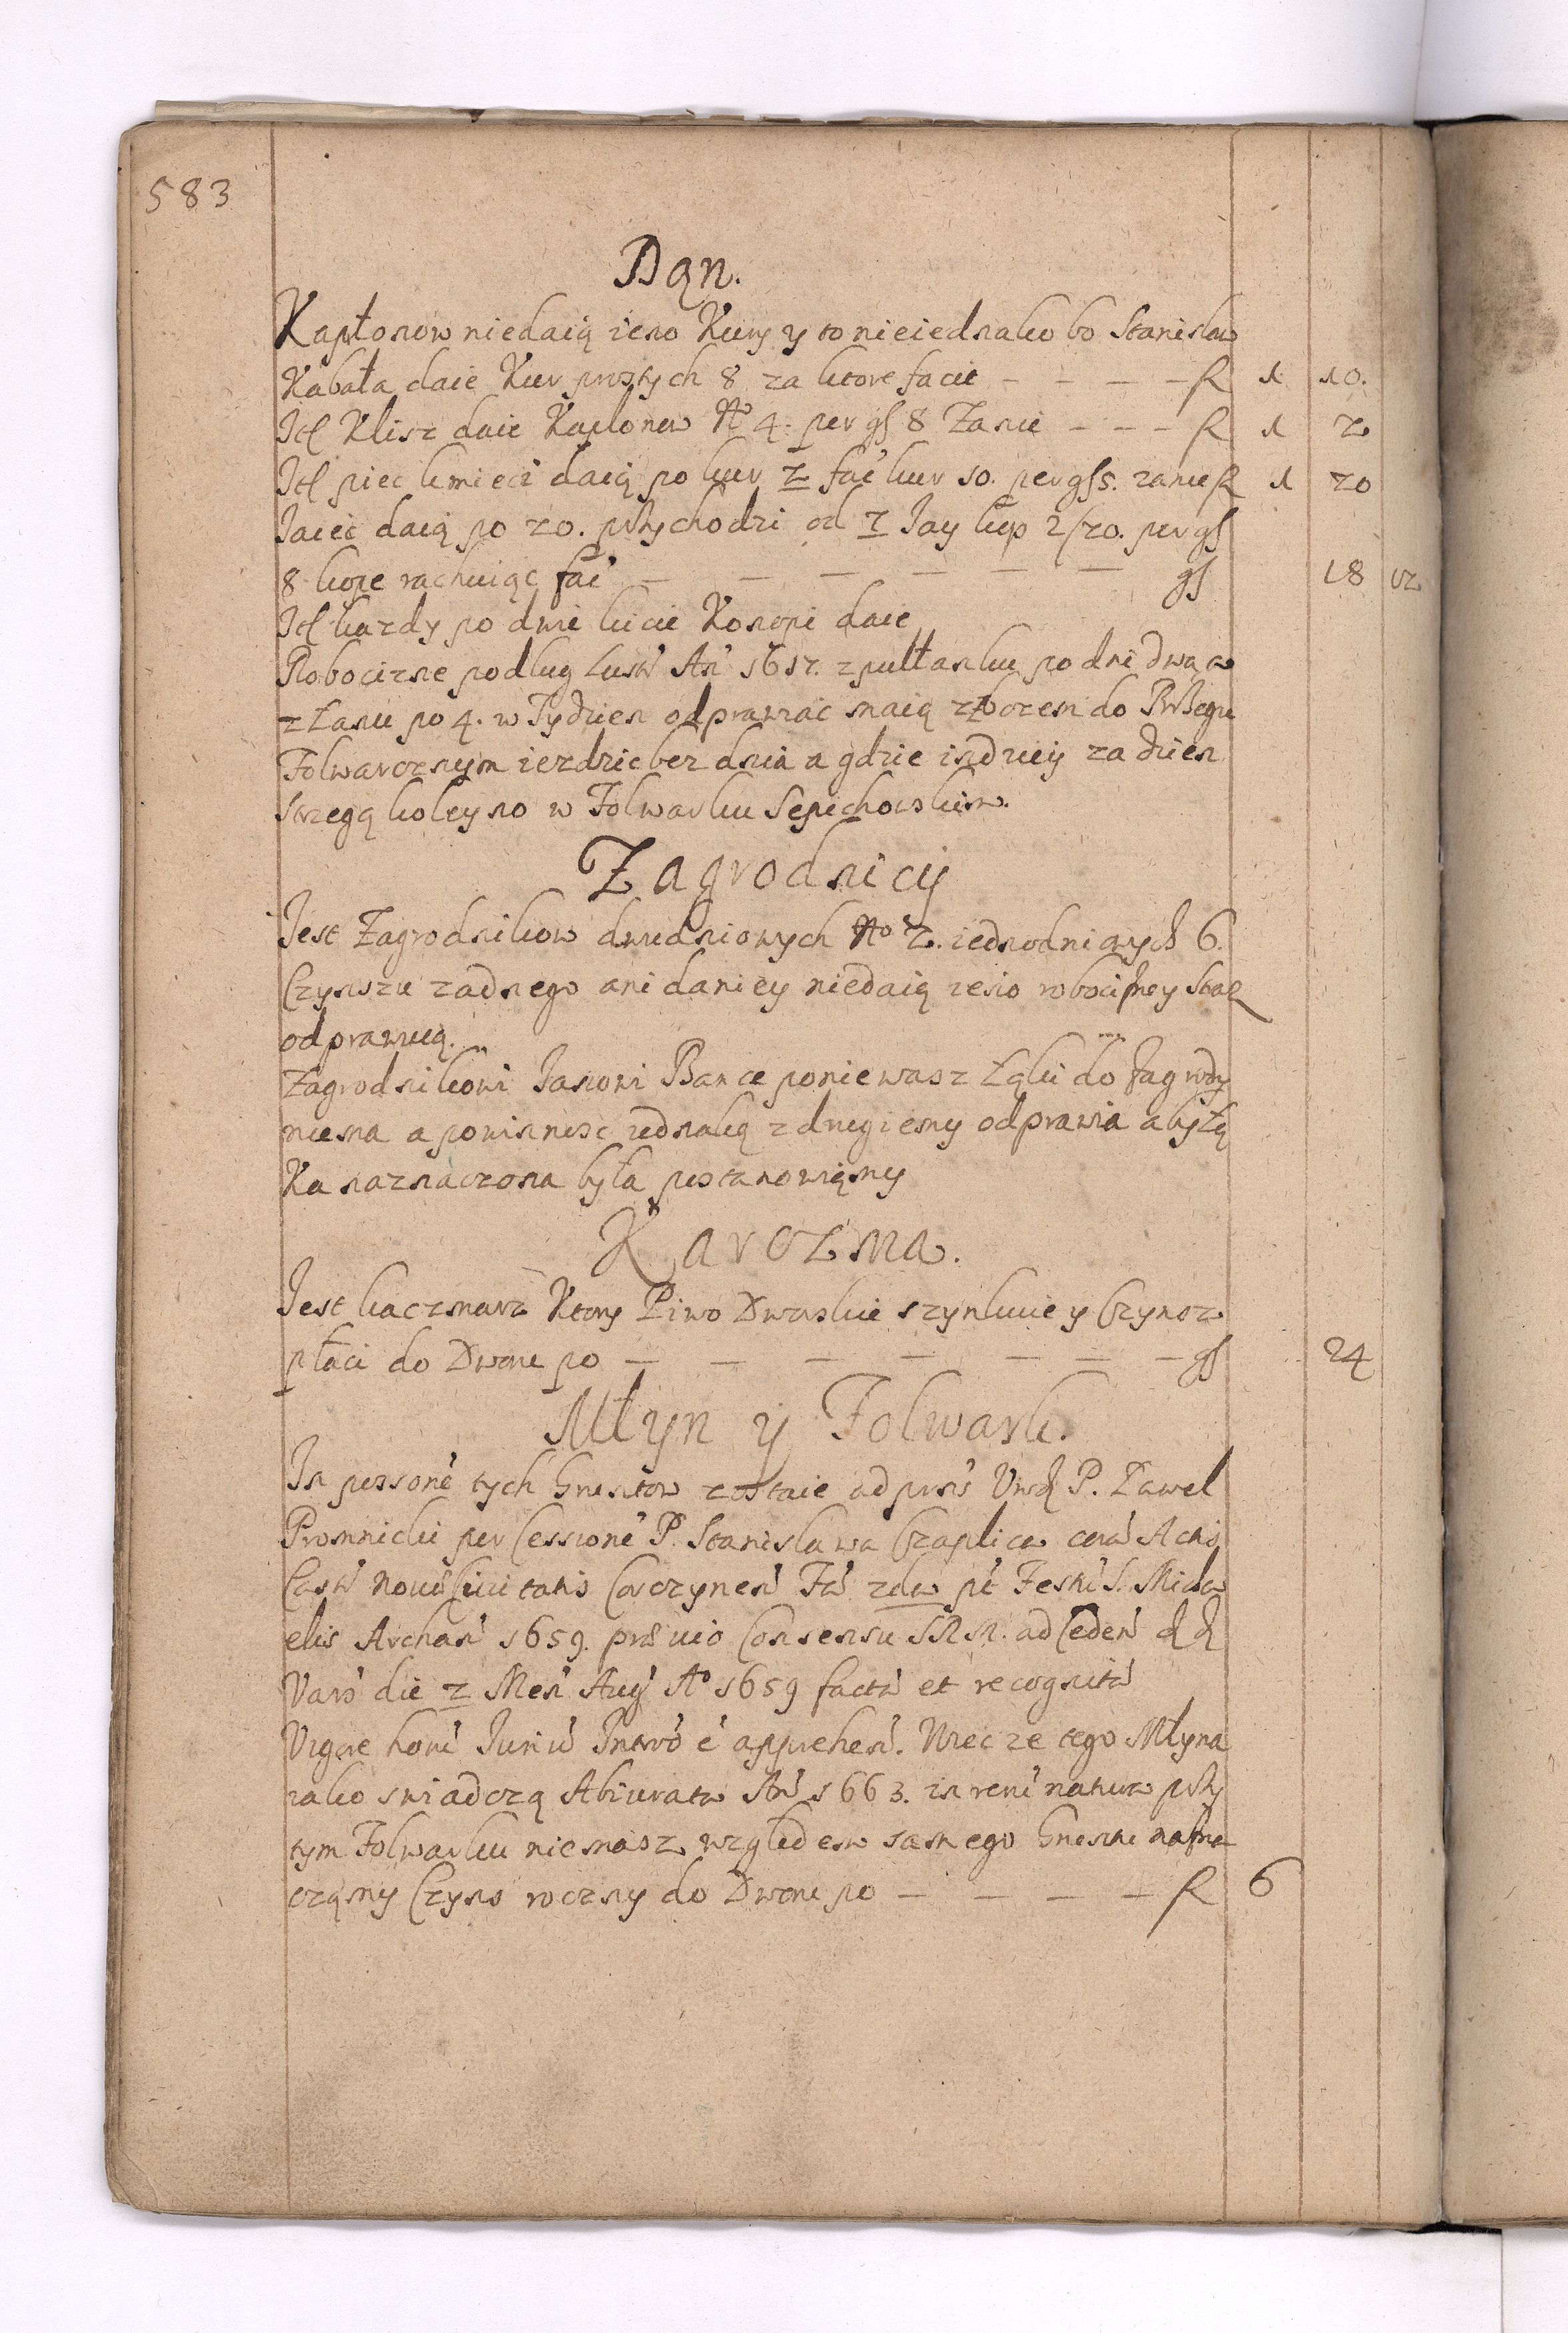 583
Dan.
Kapłonow niedaią ieno Kury y to nieiednako bo Stanisław
Kabała daie Kur prostych 8 za ktore facit - - - - fl 1 10.
Itē Klisz daie Kapłonow No 4. per gſ 8 Zanie - - - fl 1 2
Itē piec kmieci daią po kur 2 fac kur 10. per gſ 5. zanie fl 1 20
Iaiec daią po 20. przychodzi od 7 Iay kop 2/20. per gſ
8 kopę rachuiąc fac' — — — — — — gſ 18 12
Itē kazdy po dwie kicie Konopi daie
Robocizne podług Lustr An 1617. z pułłanku po dni dwa a
z Łanu po 4. w Tydzien odprawiac maią zbozem do Brzegu
Folwarcznym iezdzic bez dnia a gdzie indziey za dzien
strzegą koleyno w Folwarku Sepichowskim.
Zagrodnicy
Jest Zagrodnikow dwudniowych No 2. iednodniowych 6.
Czynszu zadnego ani daniey niedaią ieno robocizney
odprawuią.
Zagrodnikowi Ianowi Bance poniewasz Łąki do Zagrody
niema a powinnosc iednaką z drugiemy odprawia aby Łą
Ka naznaczona była postanowiąmy
Karczma.
Jest kaczmarz Ktory Piwo Dworskie szynkuie y Czynsz
płaci do Dworu po — — — — — — — gſ 24
Młyn y Folwark.
In personē tych Gruntow zostaie ad prns P. Pawel
Promnicki per Cessionē P. Stanislawa Czaplica corā Actis
Castr novē Civitatis Corczynen Fr̄ 2da pt Festū S. Micha
elis Archan 1659. prævio Consensu SRM. ad Ceden
Vars die 2 Men Aug Ao 1659 factā et recognitā
Vigore horū Iuriū Intro e apprehen. Wiec ze tego Młyna
iako swiadczą Abiurata An 1663. in rerū natura przy
tym Folwarku niemasz względem samego Gruntu nazna
cząmy Czyns roczny do Dworu po — — — — fl 6